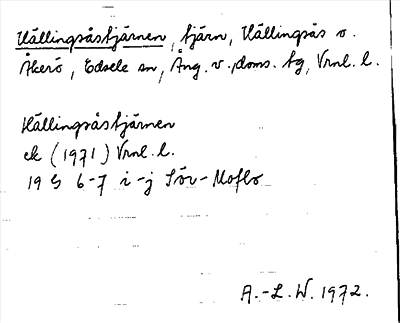 Hällingsåstjärnen, tjärn, Hällingsås o.
Åkerö, Edsele sn, Ång. v. doms. tg, Vrnl. l.
Hällingsåstjärnen
ek (1971) Vrnl. l.
19 G 6-7 i-j Sör-Moflo
A.-L. W. 1972.